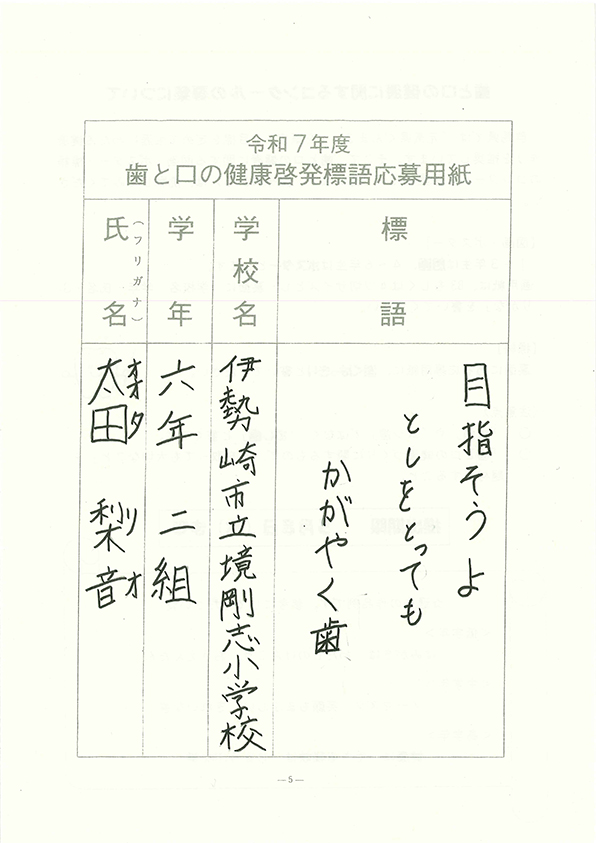 令和7年度
歯と口の健康啓発標語応募用紙
標語
目指そうよ
としをとっても
かがやく歯
学校名
伊勢崎市立境剛志小学校
学年
六年 二組
氏名
(フリガナ)
太田 梨音
オオタ リオ
—5—